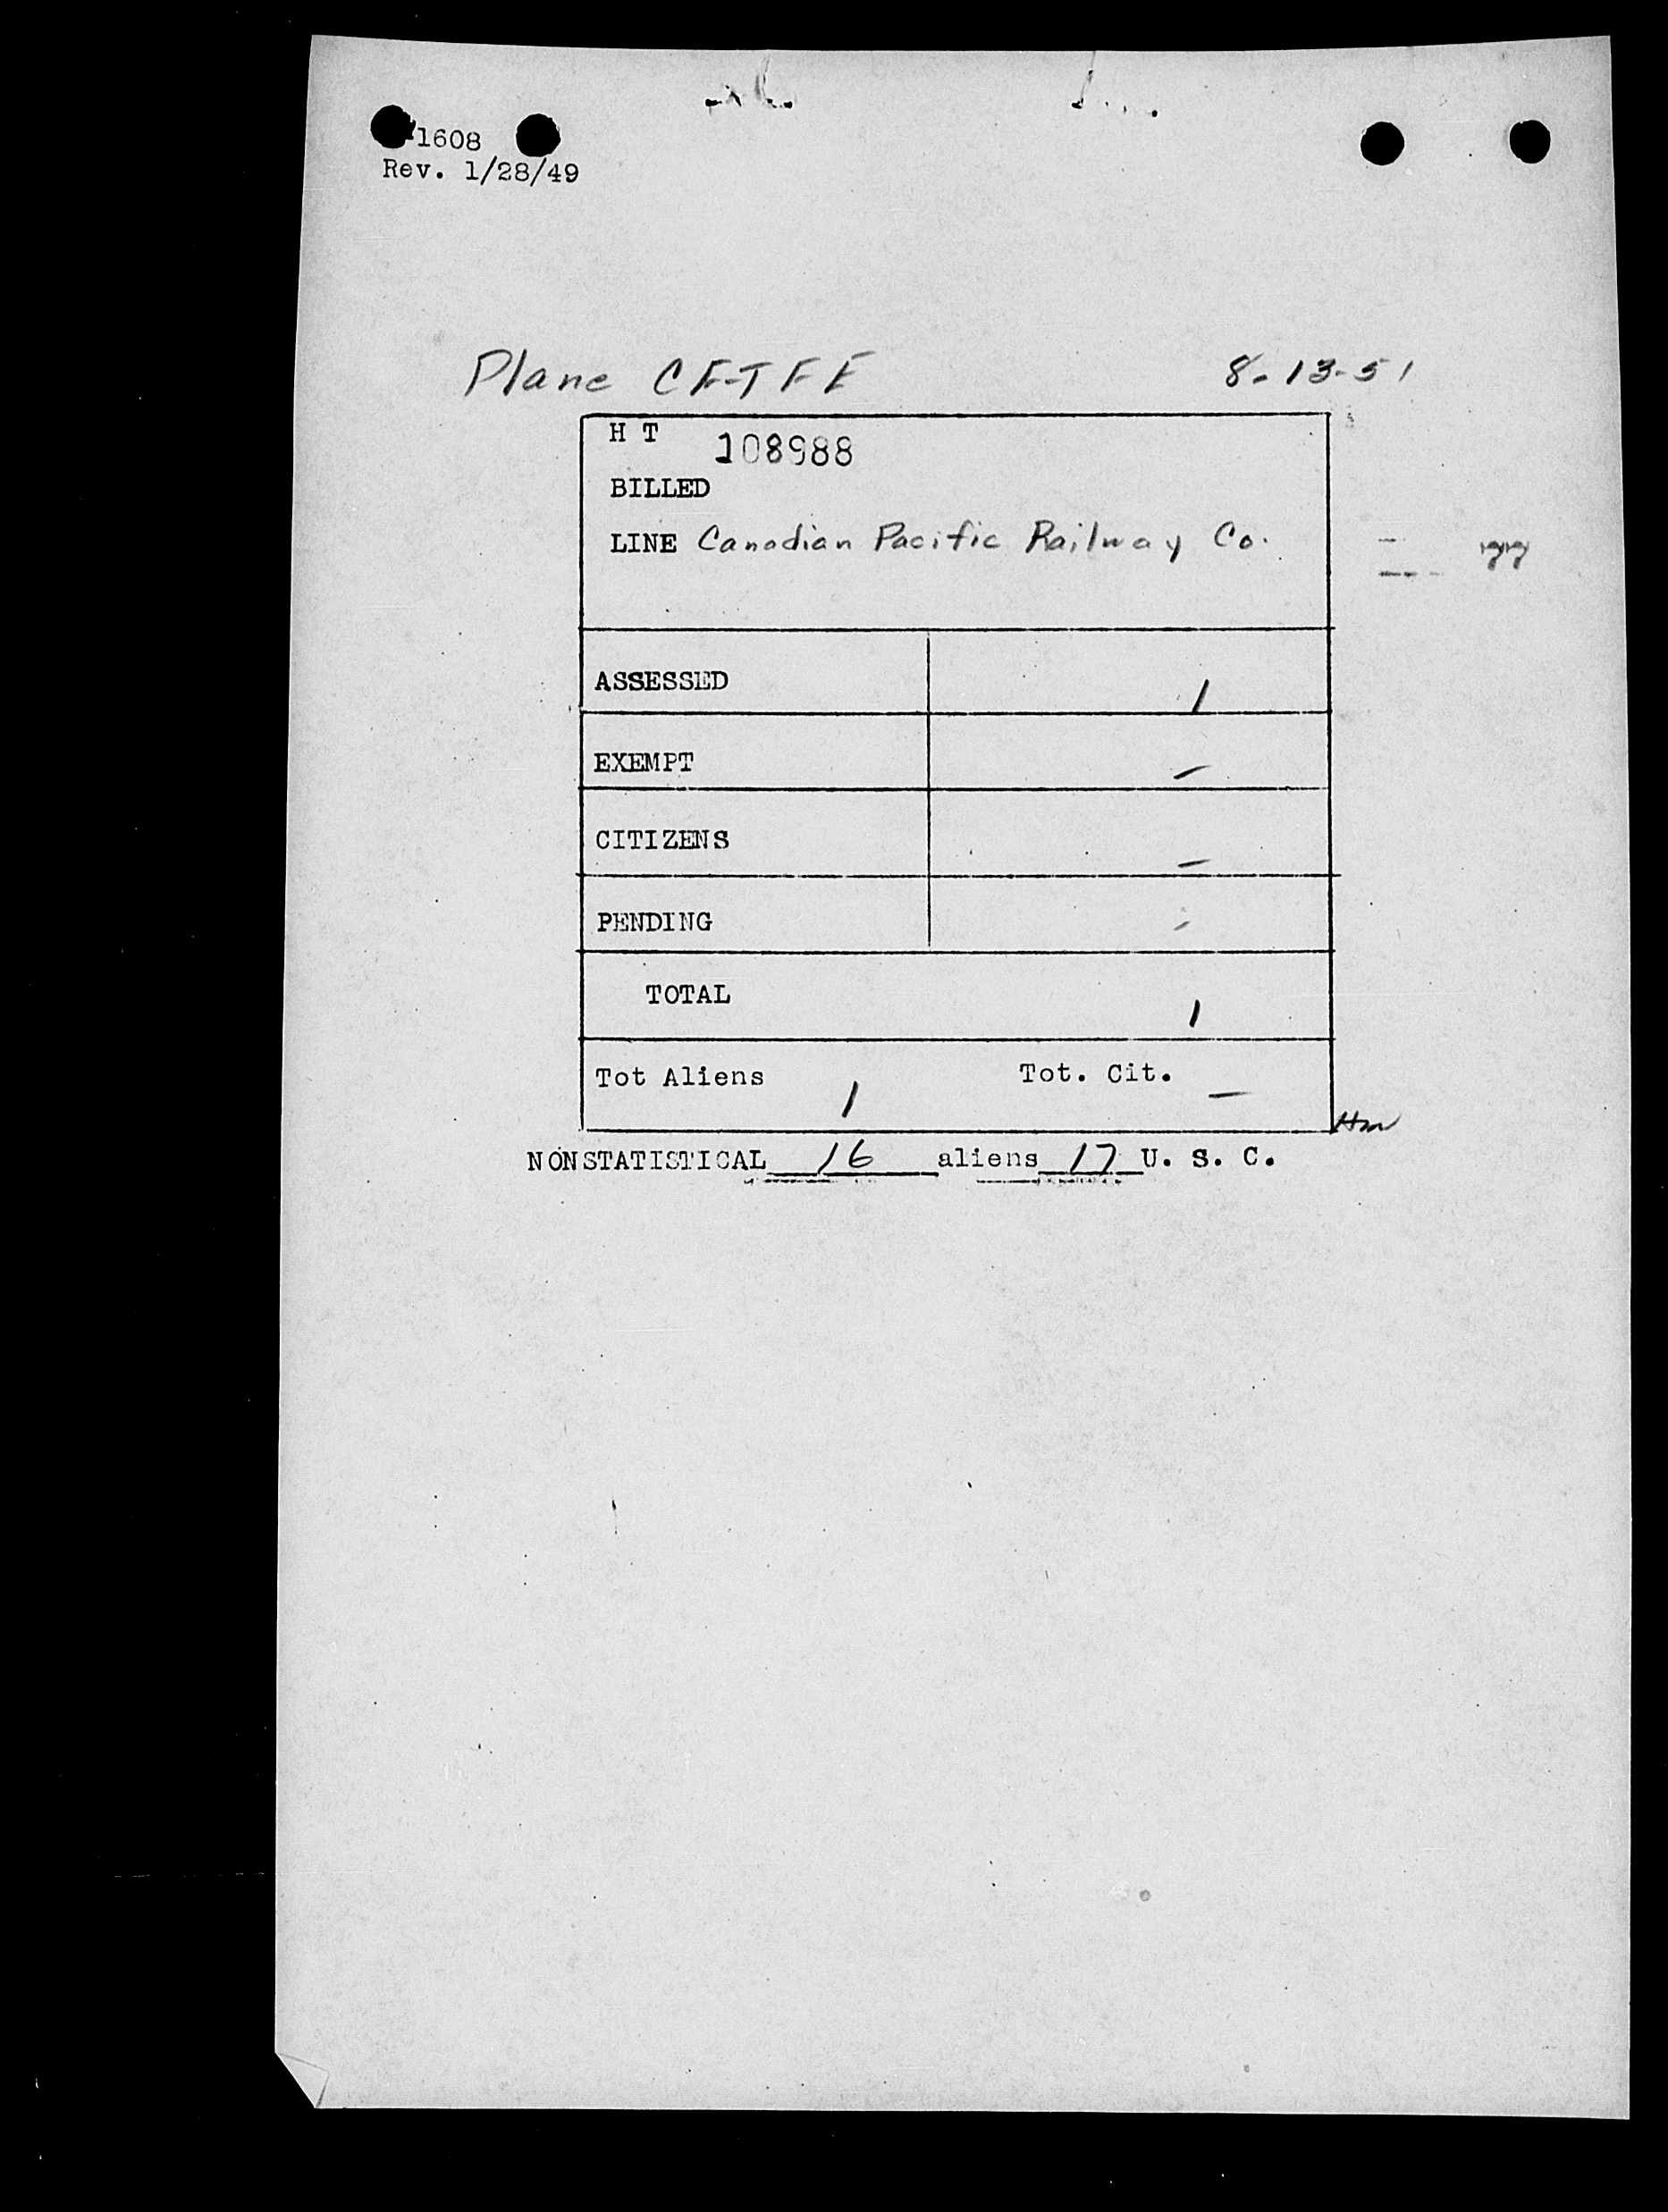 1608
Rev. 1/28/49
Plane CF-TFE 8-13-51
H T 108988
BILLED
LINE Canadian Pacific Railway Co.
ASSESSED 1
EXEMPT –
CITIZENS –
PENDING -
TOTAL 1
Tot Aliens 1 Tot. Cit. –
NONSTATISTICAL 16 aliens 17 U. S. C.